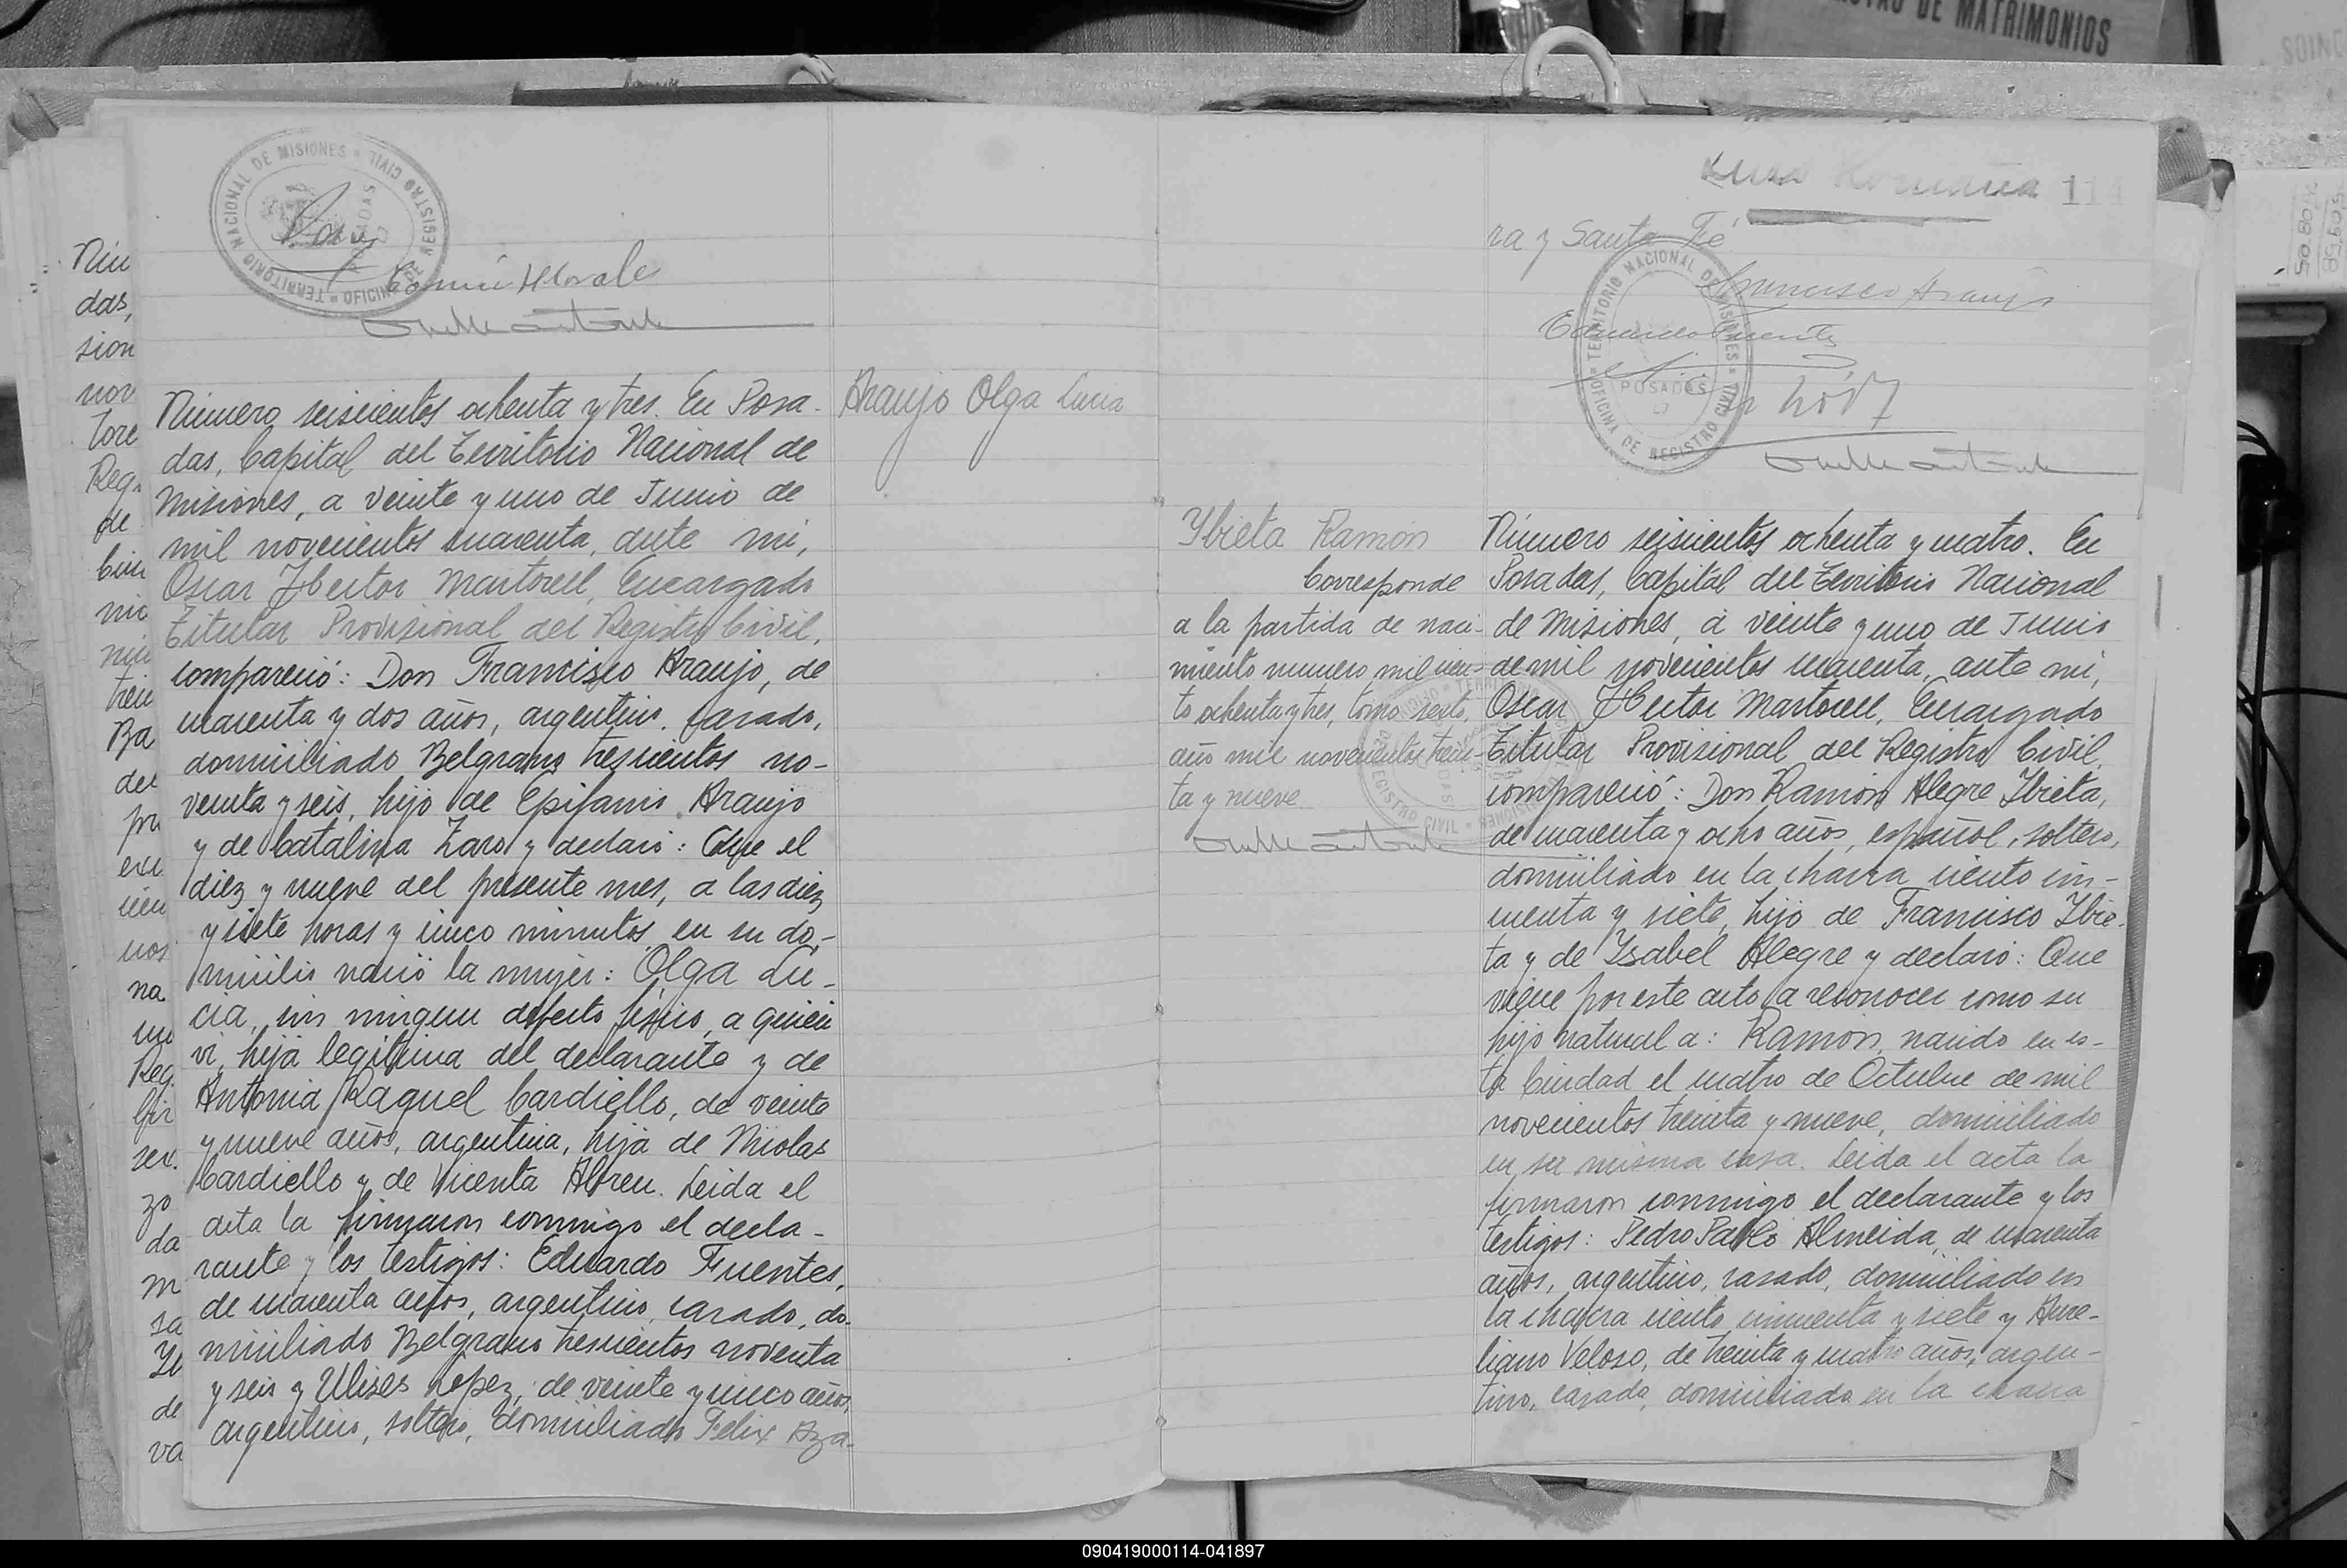 DE MATRIMONIOS
TERRITORIO NACIONAL DE MISIONES
OFICINA DE REGISTRO CIVIL
POSADAS
Número seiscientos ochenta y tres. En Posa-
das, Capital del Territorio Nacional de
Misiones, a veinte y uno de Junio de
mil novecientos cuarenta, ante mi,
Oscar Hector Martorell, Encargado
Titular Provisional del Registro Civil,
compareció: Don Francisco Araujo, de
cuarenta y dos años, argentino, casado,
domiciliado Belgrano trescientos no-
venta y seis, hijo de Epifanio Araujo
y de Catalina Zaro y declaró: Que el
diez y nueve del presente mes, a las diez
y siete horas y cinco minutos en su do-
micilio nació la mujer: Olga Lu-
cia, sin ningun defecto fisico, a quien
vi, hija legitima del declarante y de
Antonia Raquel Cardiello, de veinte
y nueve años, argentina, hija de Nicolas
Cardiello y de Vicenta Abreu. Leida el
acta la firmaron conmigo el decla-
rante y los testigos: Eduardo Fuentes,
de cuarenta años, argentino, casado, do-
miciliado Belgrano trescientos noventa
y seis y Ulises Lopez, de veinte y cinco años,
argentino, soltero, domiciliado Felix Aza-
Araujo Olga Lucia
114
ra y Santa Fé
Francisco Araujo
Eduardo Fuentes
TERRITORIO NACIONAL DE MISIONES
OFICINA DE REGISTRO CIVIL
POSADAS
Ybieta Ramón
Corresponde
a la partida de naci-
miento numero mil cien-
to ochenta y tres, tomo sexto,
año mil novecientos trein-
ta y nueve
Número seiscientos ochenta y cuatro. En
Posadas, Capital del Territorio Nacional
de Misiones, a veinte y uno de Junio
de mil novecientos cuarenta, ante mi,
Oscar Hector Martorell, Encargado
Titular Provisional del Registro Civil,
compareció: Don Ramón Alegre Ybieta,
de cuarenta y ocho años, español, soltero,
domiciliado en la chacra ciento cin-
cuenta y siete, hijo de Francisco Ybie-
ta y de Ysabel Alegre y declaró: Que
viene por este acto a reconocer como su
hijo natural a: Ramón, nacido en es-
ta Ciudad el cuatro de Octubre de mil
novecientos treinta y nueve, domiciliado
en su misma casa. Leida el acta la
firmaron conmigo el declarante y los
testigos: Pedro Pablo Almeida, de cuarenta
años, argentino, casado, domiciliado en
la chacra ciento cincuenta y siete y Aure-
liano Veloso, de treinta y cuatro años, argen-
tino, casado, domiciliado en la chacra
090419000114-041897